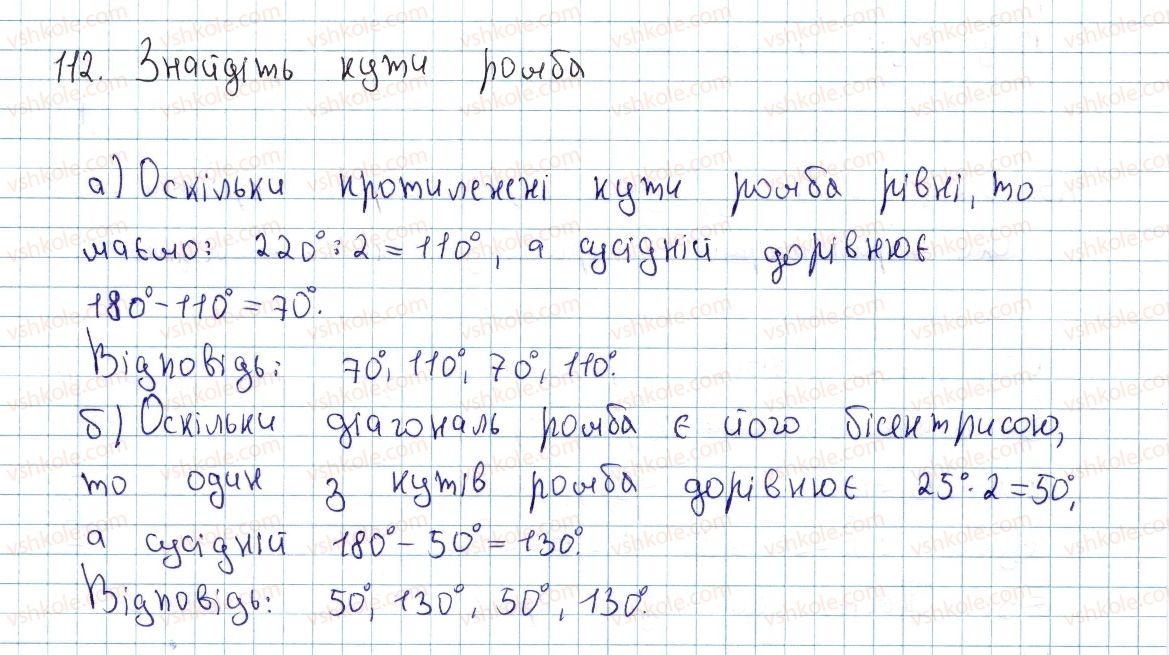 112. Знайдіть кути ромба
а) Оскільки протилежні кути ромба рівні, то
маємо: 220° : 2 = 110°, а сусідній дорівнює
180° - 110° = 70°.
Відповідь: 70°, 110°, 70°, 110°.
б) Оскільки діагональ ромба є його бісектрисою,
то один з кутів ромба дорівнює 25° · 2 = 50°,
а сусідній 180° - 50° = 130°.
Відповідь: 50°, 130°, 50°, 130°.